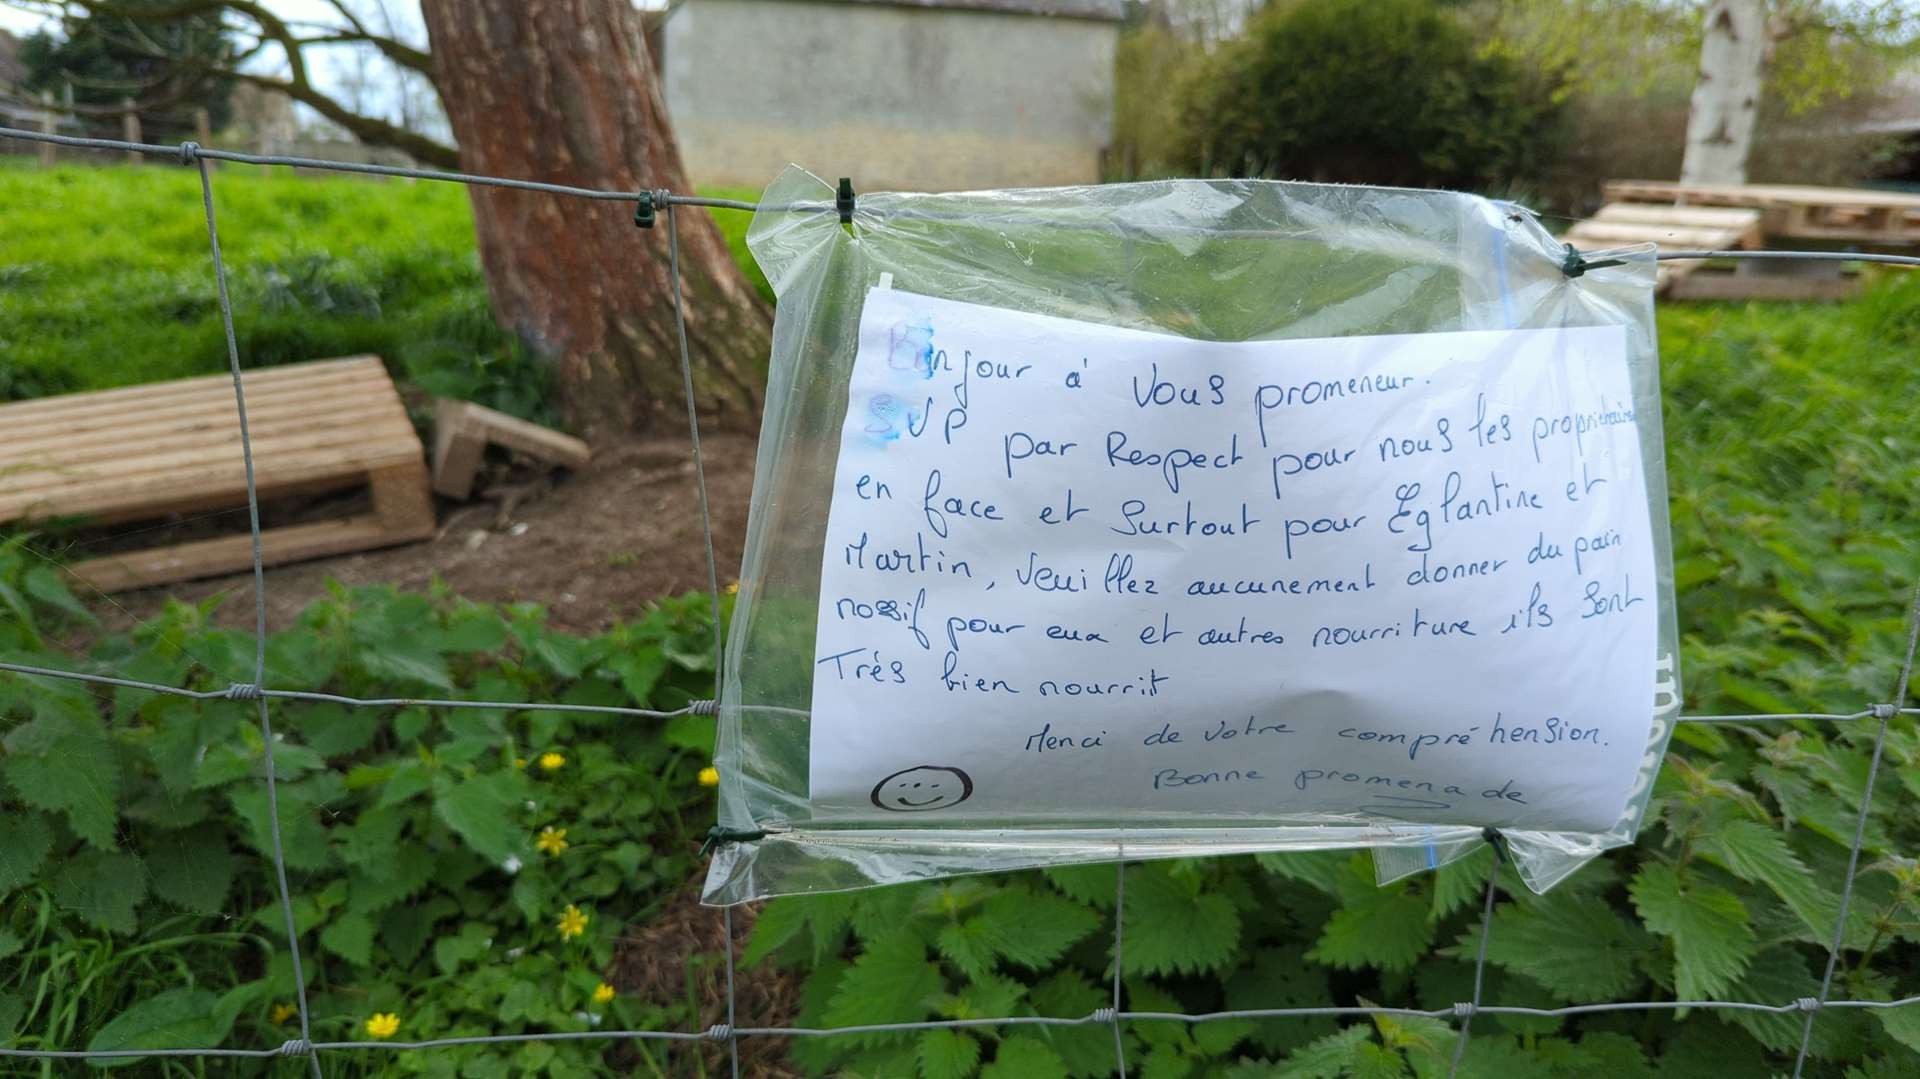 Bonjour à Vous promeneur.
SVP par Respect pour nous les propriétaires
en face et Surtout pour Eglantine et
Martin, Veuillez aucunement donner du pain
nossif pour eux et autres nourriture ils Sont
Très bien nourrit
Merci de Votre compréhension.
Bonne promenade